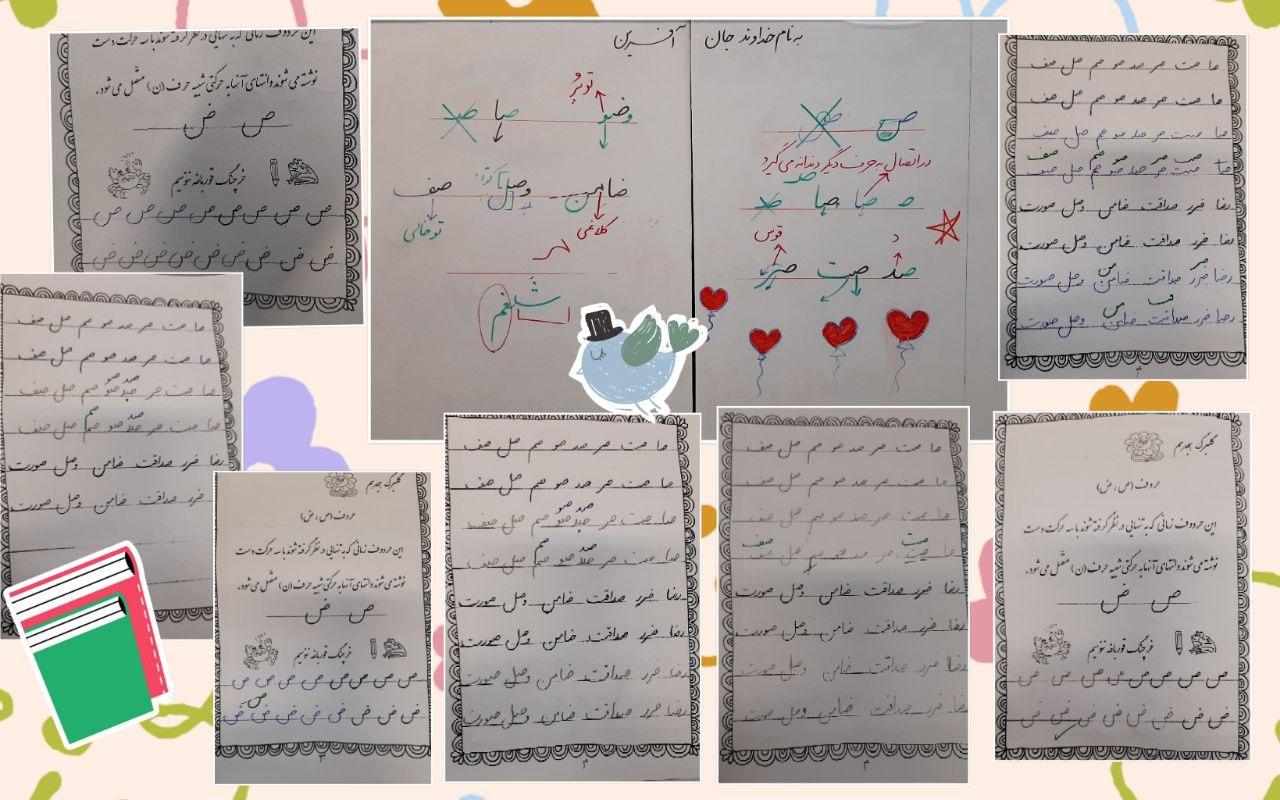 به نام خداوند جان آفرین
ص ض
در اتصال به حرف دیگر دندانه می گیرد
صد
ص صا صا صد
د قوس
صد صت صر
توپُر
وضو صا صد
ضامن وصل کوتاه صف
کلاغی توخالی
شلغم
این حروف زمانی که به تنهایی در نظر گرفته شوند با سه حرکت دست
نوشته می شوند و انتهای آنها به حرکتی شبیه حرف (ن) متصل می شود.
ص ض
خرچنگ قورباغه ننویسم
ص ص ص ص ص ص ص ص
ض ض ض ض ض ض ض ض
صا صت صر صد صو صم صل صف
صا صت صر صد صو صم صل صف
صا صت صر صد صو صم صل صف
صت صر صو صم صف
صا صت صر صد صو صم صل صف
رضا ضرر صداقت ضامن وصل صورت
رضا ضرر صداقت ضامن وصل صورت
رضا ضرر صداقت ضامن وصل صورت
رضا ضرر صداقت ضامن وصل صورت
۴
صا صت صر صد صو صم صل صف
صا صت صر صد صو صم صل صف
صد صو
صا صت صر صد صو صم صل صف
صد صم
صا صت صر صد صو صم صل صف
رضا ضرر صداقت ضامن وصل صورت
ضرر صداقت ضامن وصل صورت
گلبرگ هجدهم
حروف (ص ، ض)
این حروف زمانی که به تنهایی در نظر گرفته شوند با سه حرکت دست
نوشته می شوند و انتهای آنها به حرکتی شبیه حرف (ن) متصل می شود.
ص ض
خرچنگ قورباغه ننویسم
ص ص ص ص ص ص ص ص
ص
ض ض ض ض ض ض ض ض
۳
صا صت صر صد صو صم صل صف
صا صت صر صد صو صم صل صف
صد صو
صا صت صر صد صو صم صل صف
صد صم
صا صت صر صد صو صم صل صف
رضا ضرر صداقت ضامن وصل صورت
رضا ضرر صداقت ضامن وصل صورت
رضا ضرر صداقت ضامن وصل صورت
رضا ضرر صداقت ضامن وصل صورت
۴
صا صت صر صد صو صم صل صف
صا صت صر صد صو صم صل صف
صا صت صر صد صو صم صل صف
صت صف
صا صت صر صد صو صم صل صف
رضا ضرر صداقت ضامن وصل صورت
رضا ضرر صداقت ضامن وصل صورت
رضا ضرر صداقت ضامن وصل صورت
رضا ضرر صداقت ضامن وصل صورت
۴
گلبرگ هجدهم
حروف (ص ، ض)
این حروف زمانی که به تنهایی در نظر گرفته شوند با سه حرکت دست
نوشته می شوند و انتهای آنها به حرکتی شبیه حرف (ن) متصل می شود.
ص ض
خرچنگ قورباغه ننویسم
ص ص ص ص ص ص ص ص
ض ض ض ض ض ض ض ض